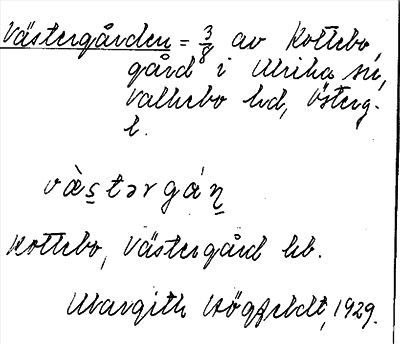 Västergården = 3/8 av Kottebo,
gård i Ulrika sn,
Valkebo hd, Österg.
l.
và̀s̲tərgáṉ
Kottebo, Västergård hb.
Margith Högfeldt, 1929.